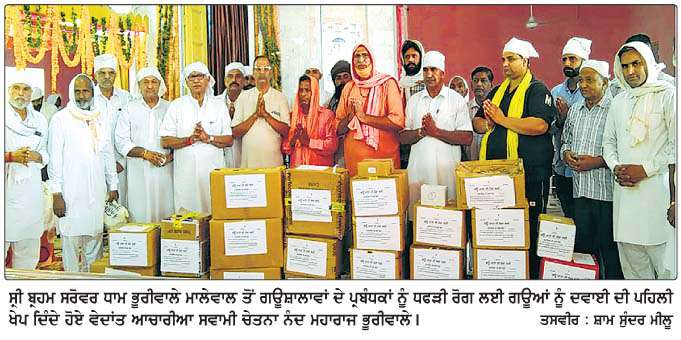 ਸ਼੍ਰੀ ਬ੍ਰਹਮ ਸਰੋਵਰ ਧਾਮ ਭੂਰੀਵਾਲੇ ਮਾਲੇਵਾਲ ਤੋਂ ਗਊਸ਼ਾਲਾਵਾਂ ਦੇ ਪ੍ਰਬੰਧਕਾਂ ਨੂੰ ਧਫੜੀ ਰੋਗ ਲਈ ਗਊਆਂ ਨੂੰ ਦਵਾਈ ਦੀ ਪਹਿਲੀ
ਖੇਪ ਦਿੰਦੇ ਹੋਏ ਵੇਦਾਂਤ ਆਚਾਰੀਆ ਸਵਾਮੀ ਚੇਤਨਾ ਨੰਦ ਮਹਾਰਾਜ ਭੂਰੀਵਾਲੇ। ਤਸਵੀਰ : ਸ਼ਾਮ ਸੁੰਦਰ ਮੀਲੂ